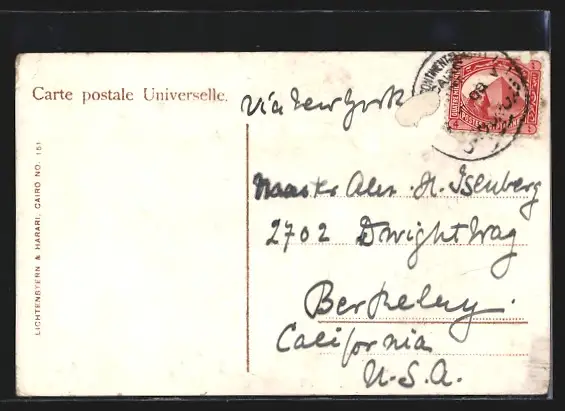 Carte postale Universelle.
via New York
Master Alex. H. Isenberg
2702 Dwight Way
Berkeley.
California
U.S.A.
LICHTENSTERN & HARARI, CAIRO NO. 151